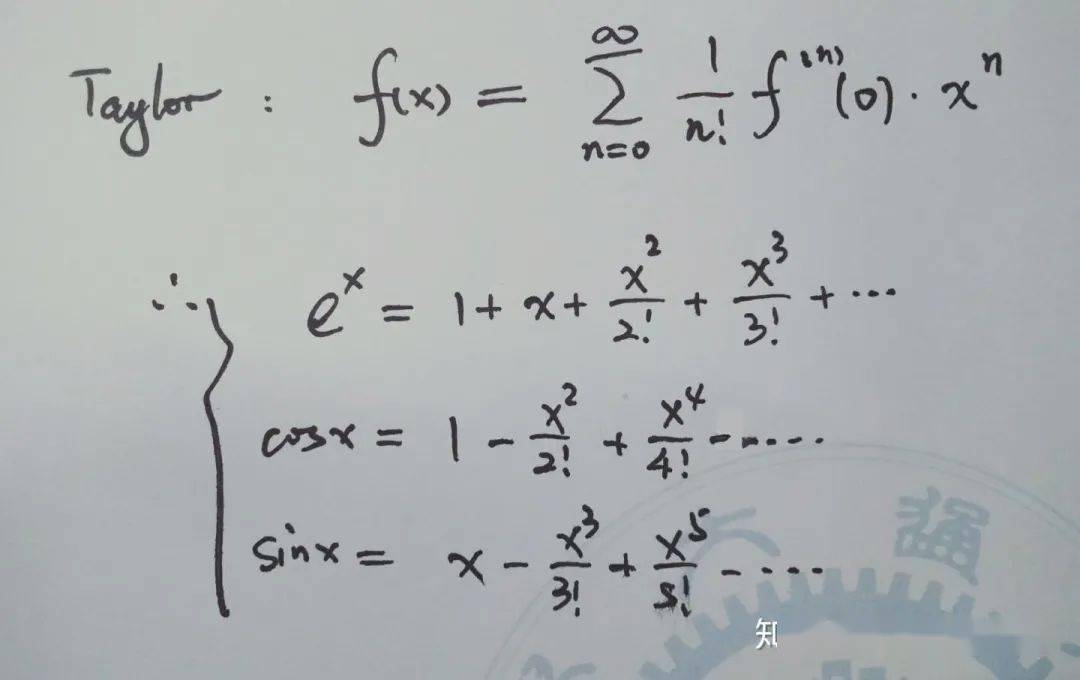 Taylor : f(x) = ∑_{n=0}^{∞} \frac{1}{n!} f^{(n)}(0) · x^n
∴ { e^x = 1 + x + \frac{x^2}{2!} + \frac{x^3}{3!} + ···
cosx = 1 - \frac{x^2}{2!} + \frac{x^4}{4!} - ·····
sinx = x - \frac{x^3}{3!} + \frac{x^5}{5!} - ····
知